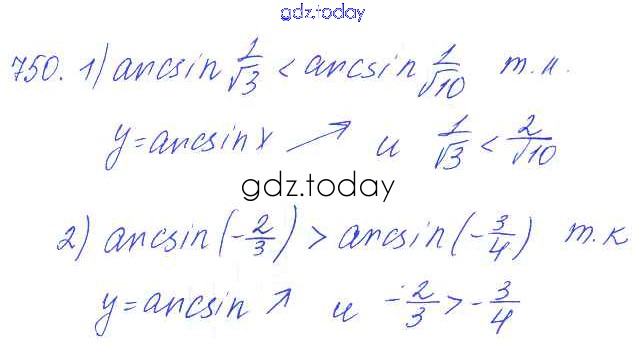 gdz.today
750. 1) arcsin 1/√3 < arcsin 1/√10 т.к.
y=arcsin x ↗ и 1/√3 < 2/√10
gdz.today
2) arcsin(-2/3) > arcsin(-3/4) т.к
y=arcsin ↗ и -2/3 > -3/4